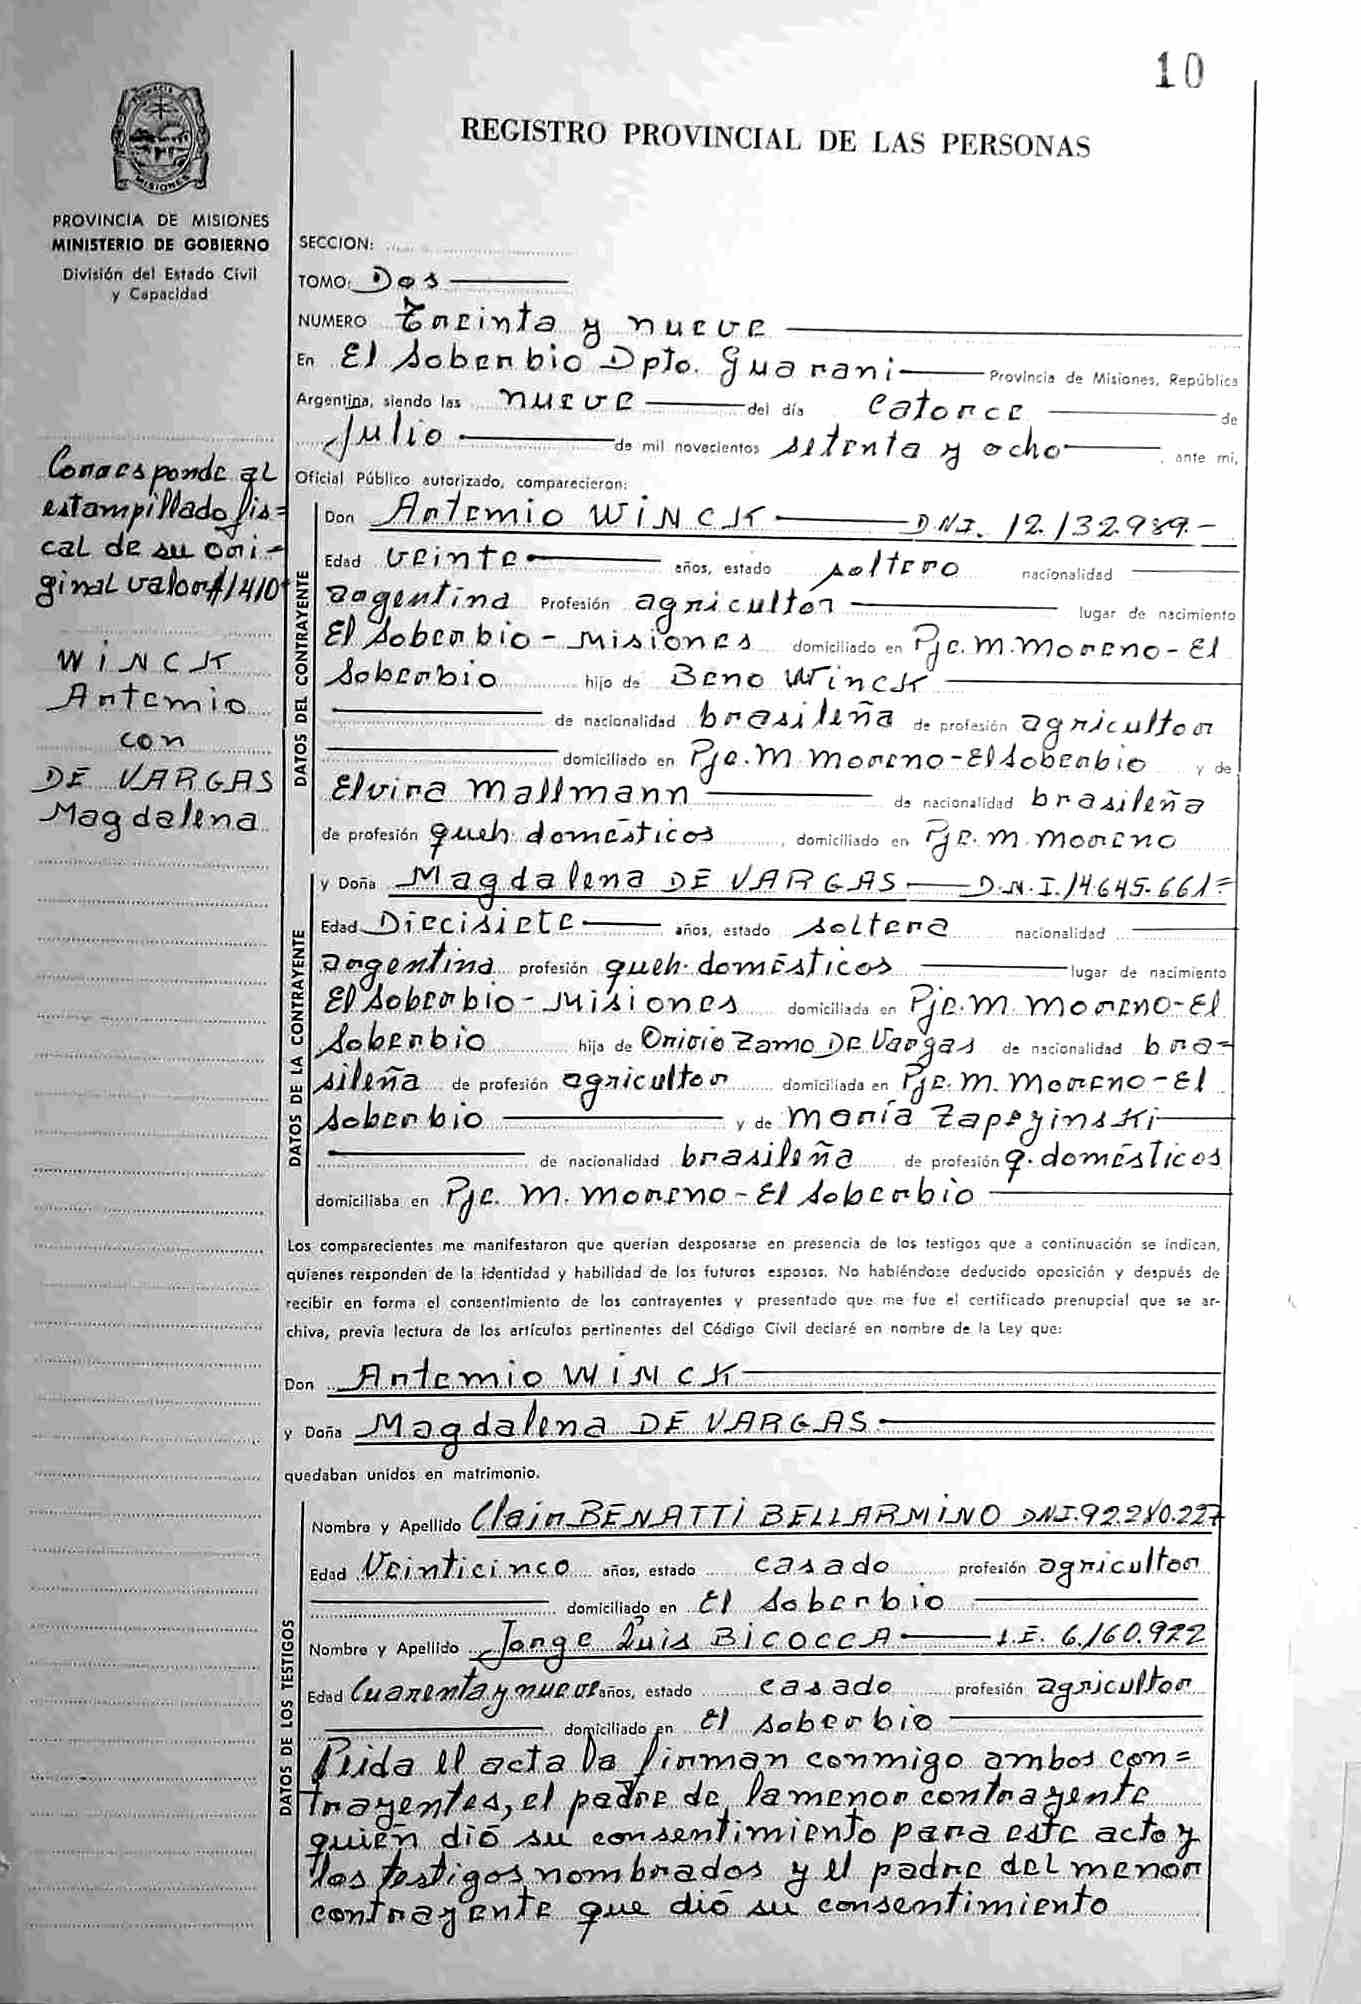 10
REGISTRO PROVINCIAL DE LAS PERSONAS
PROVINCIA DE MISIONES
MINISTERIO DE GOBIERNO
División del Estado Civil
y Capacidad
Corresponde al
estampillado fis=
cal de su ori-
ginal valor $1410
WINCK
Artemio
con
DE VARGAS
Magdalena
SECCION:
TOMO: Dos
NUMERO Treinta y nueve
En El Soberbio Dpto. Guarani Provincia de Misiones, República
Argentina, siendo las nueve del día catorce de
Julio de mil novecientos setenta y ocho, ante mi,
Oficial Público autorizado, comparecieron:
DATOS DEL CONTRAYENTE
Don Artemio WINCK D.N.I. 12.132.989.-
Edad veinte años, estado soltero nacionalidad
argentina Profesión agricultor lugar de nacimiento
El Soberbio - Misiones domiciliado en Pje. M. Moreno - El
Soberbio hijo de Beno Winck
de nacionalidad brasileña de profesión agricultor
domiciliado en Pje. M. Moreno - El Soberbio y de
Elvira Mallmann de nacionalidad brasileña
de profesión queh. domésticos, domiciliado en Pje. M. Moreno
DATOS DE LA CONTRAYENTE
y Doña Magdalena DE VARGAS D.N.I. 14.645.661=
Edad Diecisiete años, estado soltera nacionalidad
argentina profesión queh. domésticos lugar de nacimiento
El Soberbio - Misiones domiciliada en Pje. M. Moreno - El
Soberbio hija de Onirio Zamo De Vargas de nacionalidad bra=
sileña de profesión agricultor domiciliada en Pje. M. Moreno - El
Soberbio y de María Zapezinski
de nacionalidad brasileña de profesión q. domésticos
domiciliaba en Pje. M. Moreno - El Soberbio
Los comparecientes me manifestaron que querían desposarse en presencia de los testigos que a continuación se indican,
quienes responden de la identidad y habilidad de los futuros esposos. No habiéndose deducido oposición y después de
recibir en forma el consentimiento de los contrayentes y presentado que me fue el certificado prenupcial que se ar-
chiva, previa lectura de los artículos pertinentes del Código Civil declaré en nombre de la Ley que:
Don Artemio WINCK
y Doña Magdalena DE VARGAS
quedaban unidos en matrimonio.
DATOS DE LOS TESTIGOS
Nombre y Apellido Clair BENATTI BELLARMINO DNI.
Edad Veinticinco años, estado casado profesión agricultor
domiciliado en El Soberbio
Nombre y Apellido Jorge Luis BICOCCA L.E. 6.160.922
Edad Cuarenta y nueve años, estado casado profesión agricultor
domiciliado en El Soberbio
el acta la firman conmigo ambos con=
trayentes, el padre de la menor contrayente
quién dió su consentimiento para este acto y
los testigos nombrados y el padre del menor
contrayente que dió su consentimiento